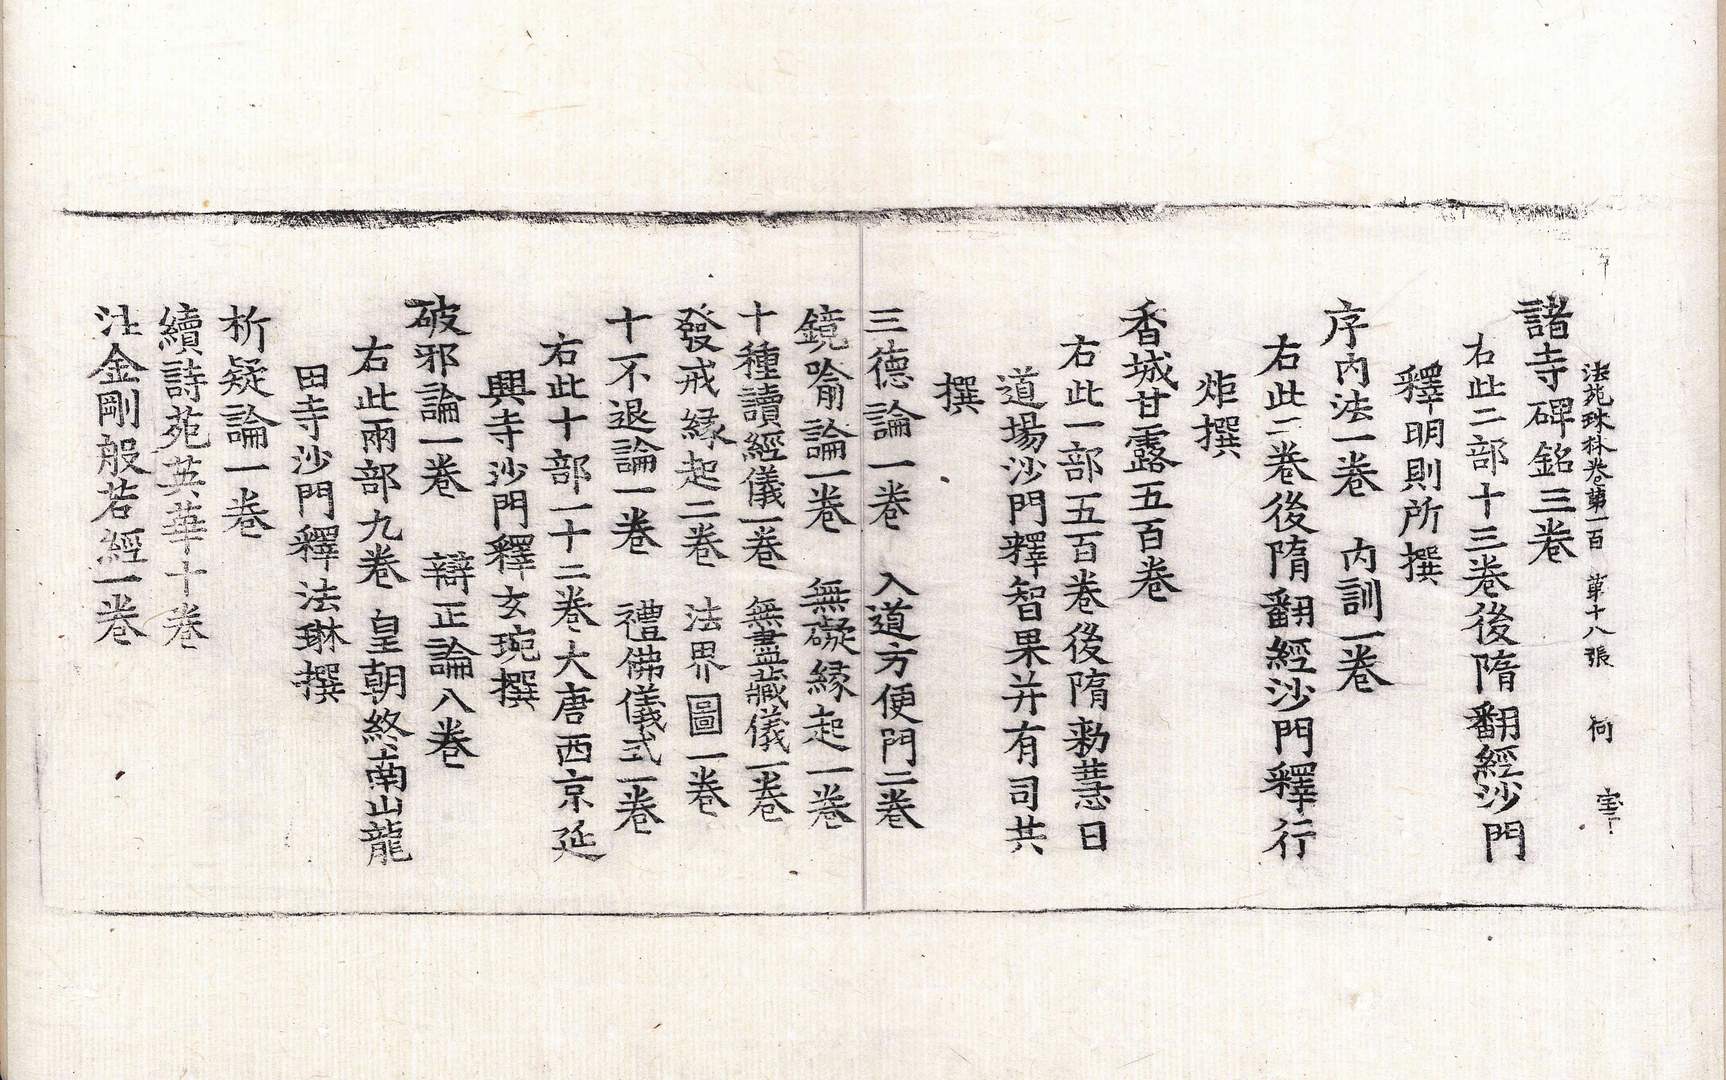 法苑珠林卷第一百　第十八張　何
諸寺碑銘三卷
右此二部十三卷後隋翻經沙門
釋明則所撰
序內法一卷　內訓一卷
右此二卷後隋翻經沙門釋行
炬撰
香城甘露五百卷
右此一部五百卷後隋勑慧日
道場沙門釋智果并有司共
撰
三德論一卷　入道方便門二卷
鏡喻論一卷　無礙緣起一卷
十種讀經儀一卷　無盡藏儀一卷
發戒緣起二卷　法界圖一卷
十不退論一卷　禮佛儀式一卷
右此十部一十二卷大唐西京延
興寺沙門釋玄琬撰
破邪論一卷　辯正論八卷
右此兩部九卷皇朝終南山龍
田寺沙門釋法琳撰
析疑論一卷
續詩苑英華十卷
注金剛般若經一卷